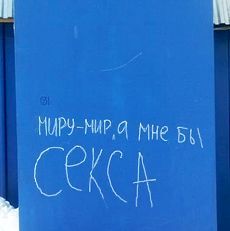 миру-мир, а мне бы
секса